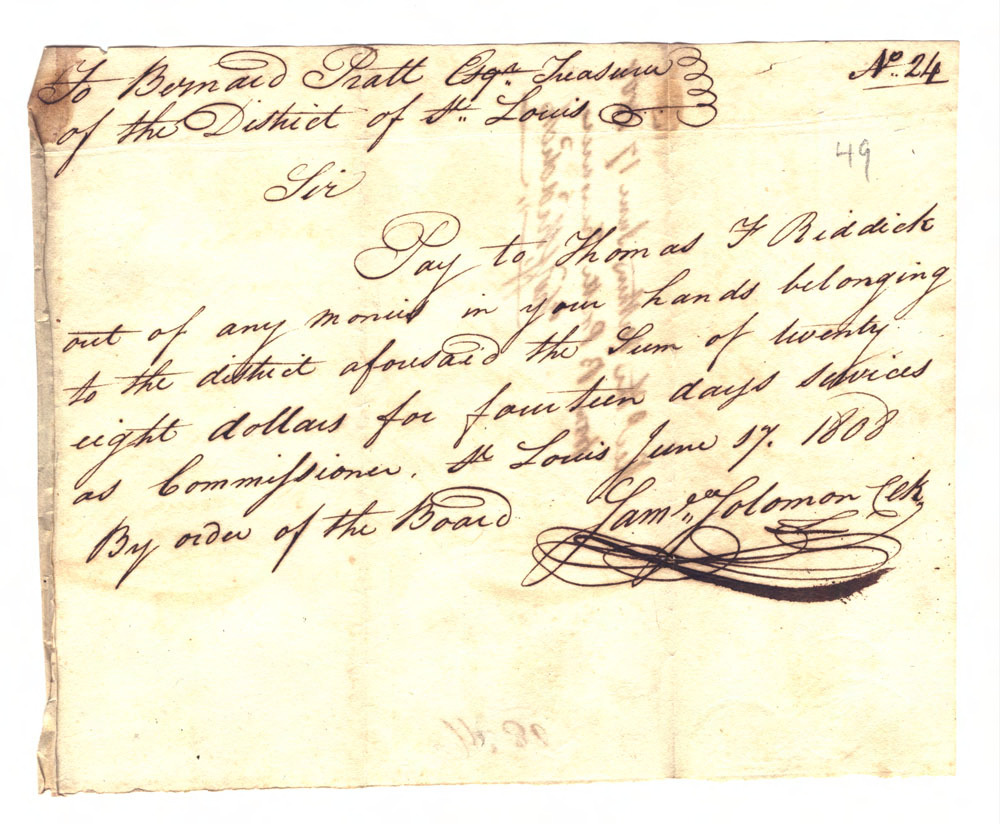 To Bernard Pratt Esqr. Treasurer
of the District of St. Louis
No. 24
49
Sir
Pay to Thomas F Riddick
out of any monies in your hands belonging
to the district aforesaid the Sum of twenty
eight dollars for fourteen days services
as Commissioner. St Louis June 17. 1808
By order of the Board Saml. Solomon Clk